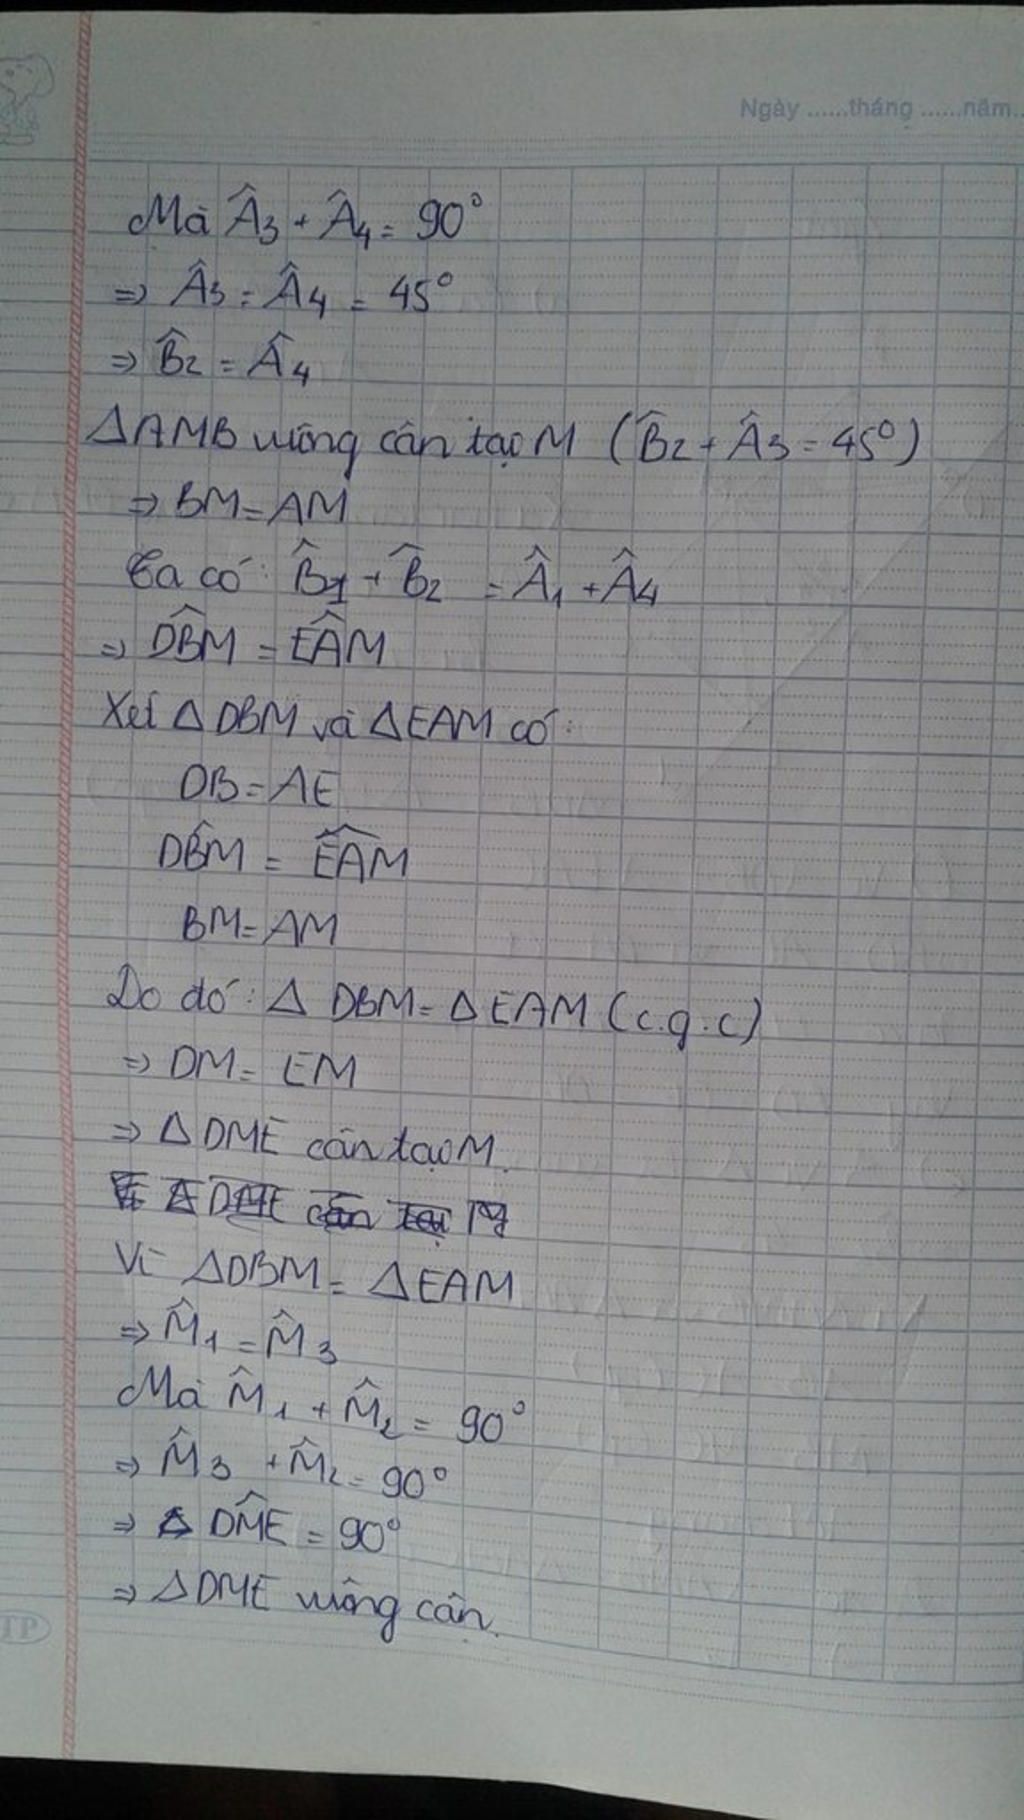 Ngày ......tháng ......năm..
Mà Â3 + Â4 = 90°
=> Â3 = Â4 = 45°
=> B̂2 = Â4
ΔAMB vuông cân tại M (B̂2 + Â3 = 45°)
=> BM = AM
Ta có: B̂1 + B̂2 = Â1 + Â4
=> DB̂M = EÂM
Xét Δ DBM và ΔEAM có:
DB = AE
DB̂M = EÂM
BM = AM
Do đó: Δ DBM = ΔEAM (c.g.c)
=> DM = EM
=> ΔDME cân tại M.
Δ DME cân tại M
Vì ΔDBM = ΔEAM
=> M̂1 = M̂3
Mà M̂1 + M̂2 = 90°
=> M̂3 + M̂2 = 90°
=> DM̂E = 90°
=> ΔDME vuông cân.
TP